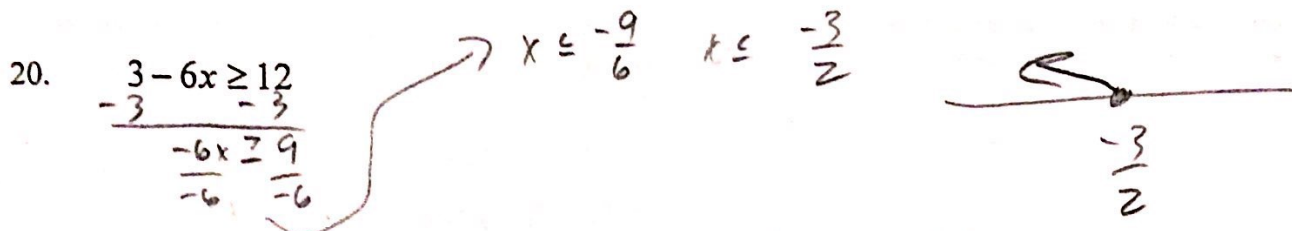 20. 3 – 6x ≥ 12
-3 -3
-6x ≥ 9
-6 -6
x ≤ -9/6 x ≤ -3/2
-3/2